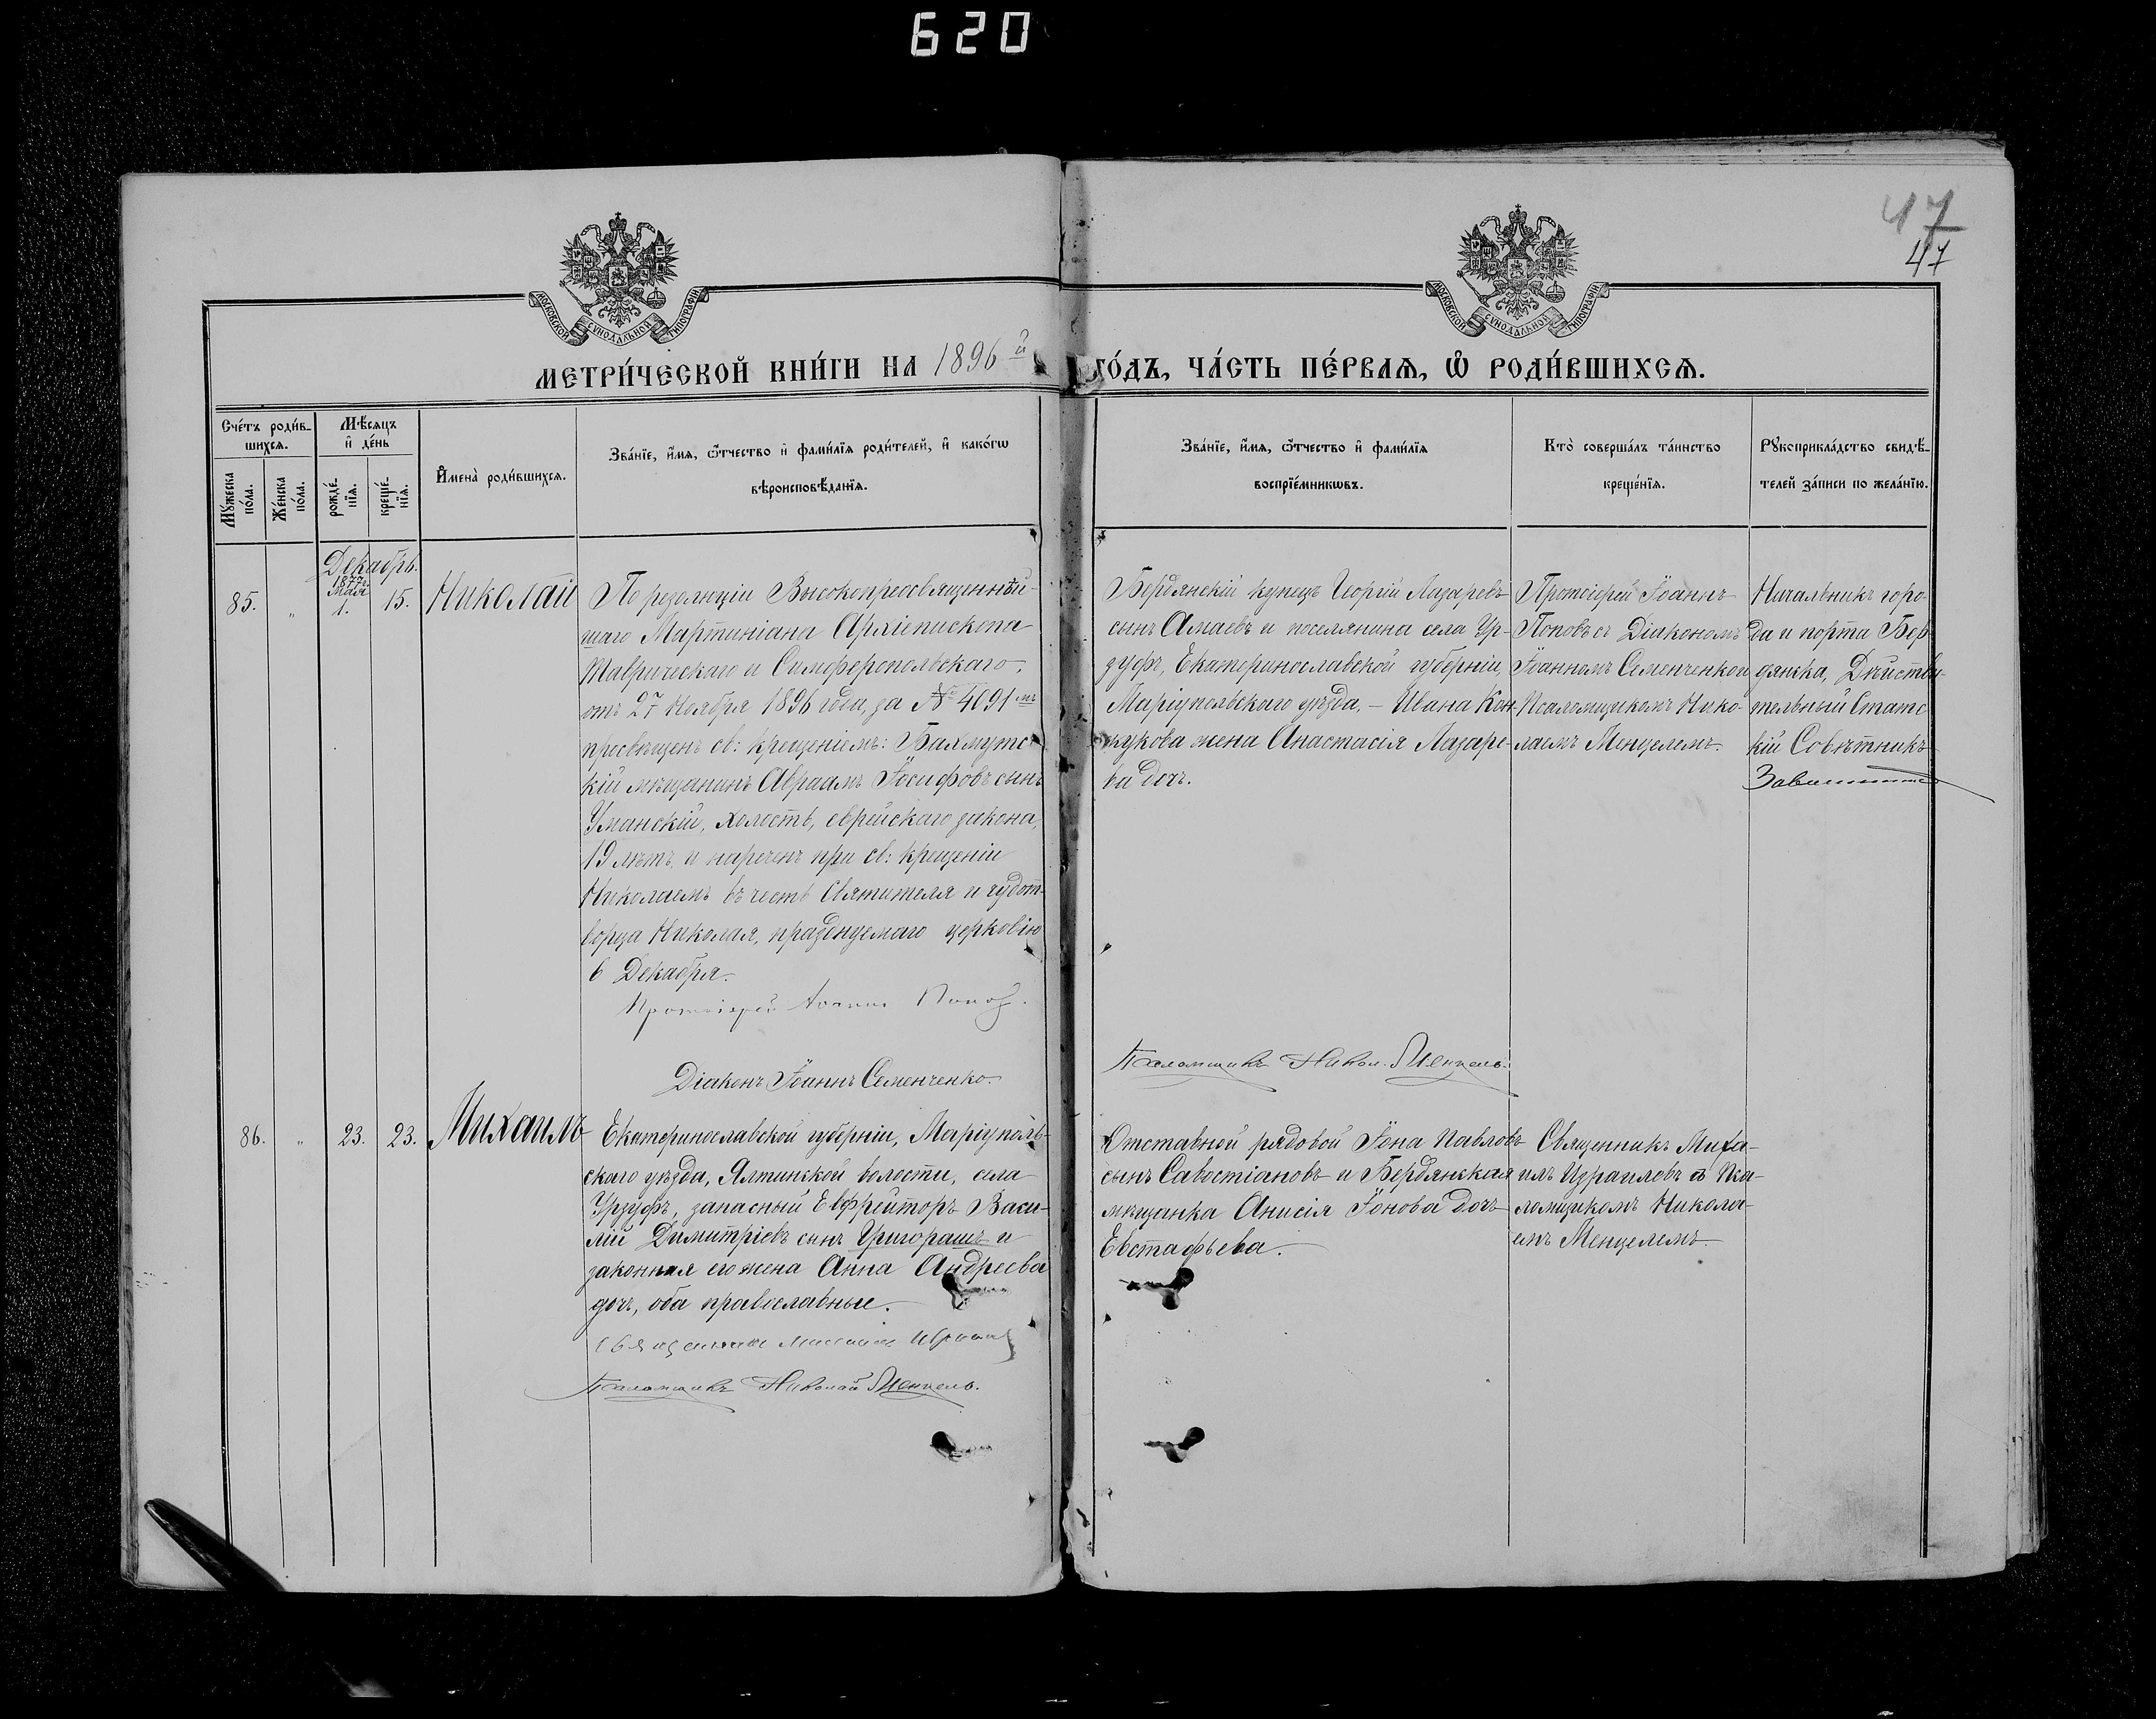 620
47
47
МОСКОВСКОЙ СУНОДАЛЬНОЙ ТИПОГРАФІИ
МОСКОВСКОЙ СУНОДАЛЬНОЙ ТИПОГРАФІИ
МЕТРИ́ЧЕСКОЙ КНИ́ГИ НА 1896й ГО́ДЪ, ЧА́СТЬ ПЕ́РВАѦ, Ѡ҆ РОДИ́ВШИХСѦ.
Сче́тъ роди́в-
шихсѧ.
Му́жеска по́ла.
Же́нска по́ла.
Мѣ́сѧцъ
и҆ де́нь
рожде́-
нїѧ.
креще́-
нїѧ.
И҆мена̀ роди́вшихсѧ.
Зва́нїе, и҆́мѧ, ѻ҆́тчество и҆ фами́лїѧ роди́телей, и҆ како́гѡ
вѣроисповѣ́данїѧ.
Зва́нїе, и҆́мѧ, ѻ҆́тчество и҆ фами́лїѧ
воспрїе́мникѡвъ.
Кто̀ соверша́лъ та́инство
креще́нїѧ.
Рꙋкоприкла́дство свидѣ́-
телей за́писи по жела́нїю.
Декабрь.
85. " 1877г. Мая 1. 15. Николай
По резолюціи Высокопреосвященнѣй-
шаго Мартиніана Архіепископа
Таврическаго и Симферопольскаго,
отъ 27 Ноября 1896 года, за № 4091мъ
просвѣщенъ св: крещеніемъ: Бахмутс-
кій мѣщанинъ Авраамъ Іосифовъ сынъ
Уманскій, холостъ, еврейскаго закона,
19 лѣтъ, и нареченъ при св: крещеніи
Николаемъ въ честь Святителя и чудот-
ворца Николая, празднуемаго церковію
6 Декабря.
Протоіерей Іоаннъ Попов.
Діаконъ Іоаннъ Семенченко.
Бердянскій купецъ Георгій Лазаревъ
сынъ Амаевъ и поселянина села Ур-
зуфъ, Екатеринославской губерніи,
Маріупольскаго уѣзда, – Ивана Кон-
жукова жена Анастасія Лазаре-
ва дочь.
Псаломщикъ Никол. Менцель.
Протоіерей Іоаннъ
Поповъ съ Діакономъ
Іоанномъ Семенченкои
Псаломщикомъ Нико-
лаемъ Менцелемъ.
Начальникъ горо-
да и порта Бер-
дянска, Дѣйстви-
тельный Статс-
кій Совѣтникъ
86. " 23. 23. Михаилъ
Екатеринославской губерніи, Маріуполь-
скаго уѣзда, Ялтинской волости, села
Урзуфъ, запасный Ефрейторъ Васи-
лій Димитріевъ сынъ Григорашъ и
законная его жена Анна Андреева
дочь, оба православные.
Священникъ Михаилъ Израил
Псаломщикъ Николай Менцель.
Отставной рядовой Іона Павловъ
сынъ Савостіановъ и Бердянская
мѣщанка Анисія Іонова дочь
Евстафьева.
Священникъ Миха-
илъ Израилевъ съ Пса-
ломщикомъ Никола-
емъ Менцелемъ.